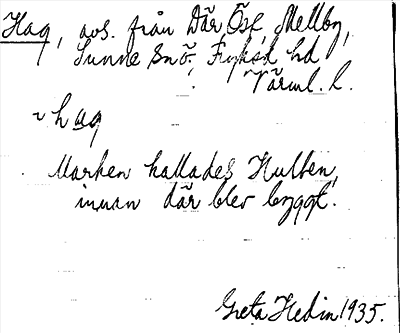 Hag, avs. från Där Öst, Skellby,
Sunne Snö., Fryksd. hd
Värml. l.
~ hag
Marken kallades Hulten,
innan där blev byggt.
Greta Hedin 1935.